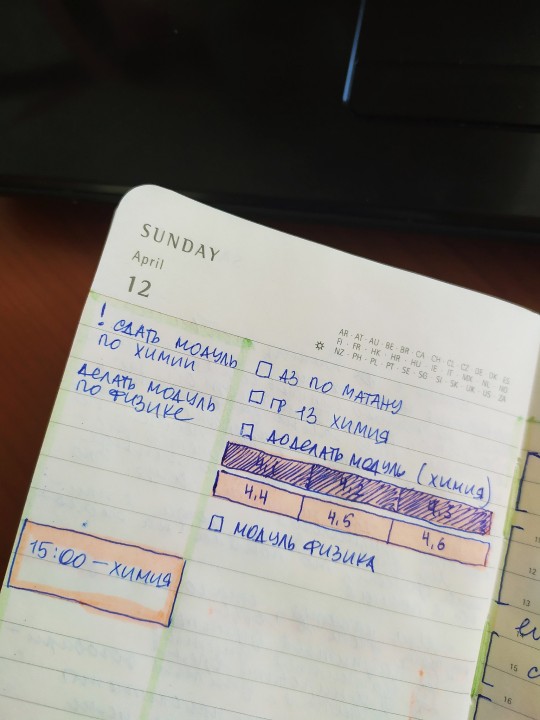 SUNDAY
April
12
AR · AT · AU · BE · BR · CA · CH
FI · FR · HK · HR · HU
NZ · PH · PL · PT · SE · SG · SI · SK
! СДАТЬ МОДУЛЬ
ПО ХИМИИ
ДЕЛАТЬ МОДУЛЬ
ПО ФИЗИКЕ
15:00 – ХИМИЯ
ДЗ ПО МАТАНУ
ГР 13 ХИМИЯ
ДОДЕЛАТЬ МОДУЛЬ (ХИМИЯ)
4.1 4.2 4.3
4.4 4.5 4.6
МОДУЛЬ ФИЗИКА
11
12
13
15
16